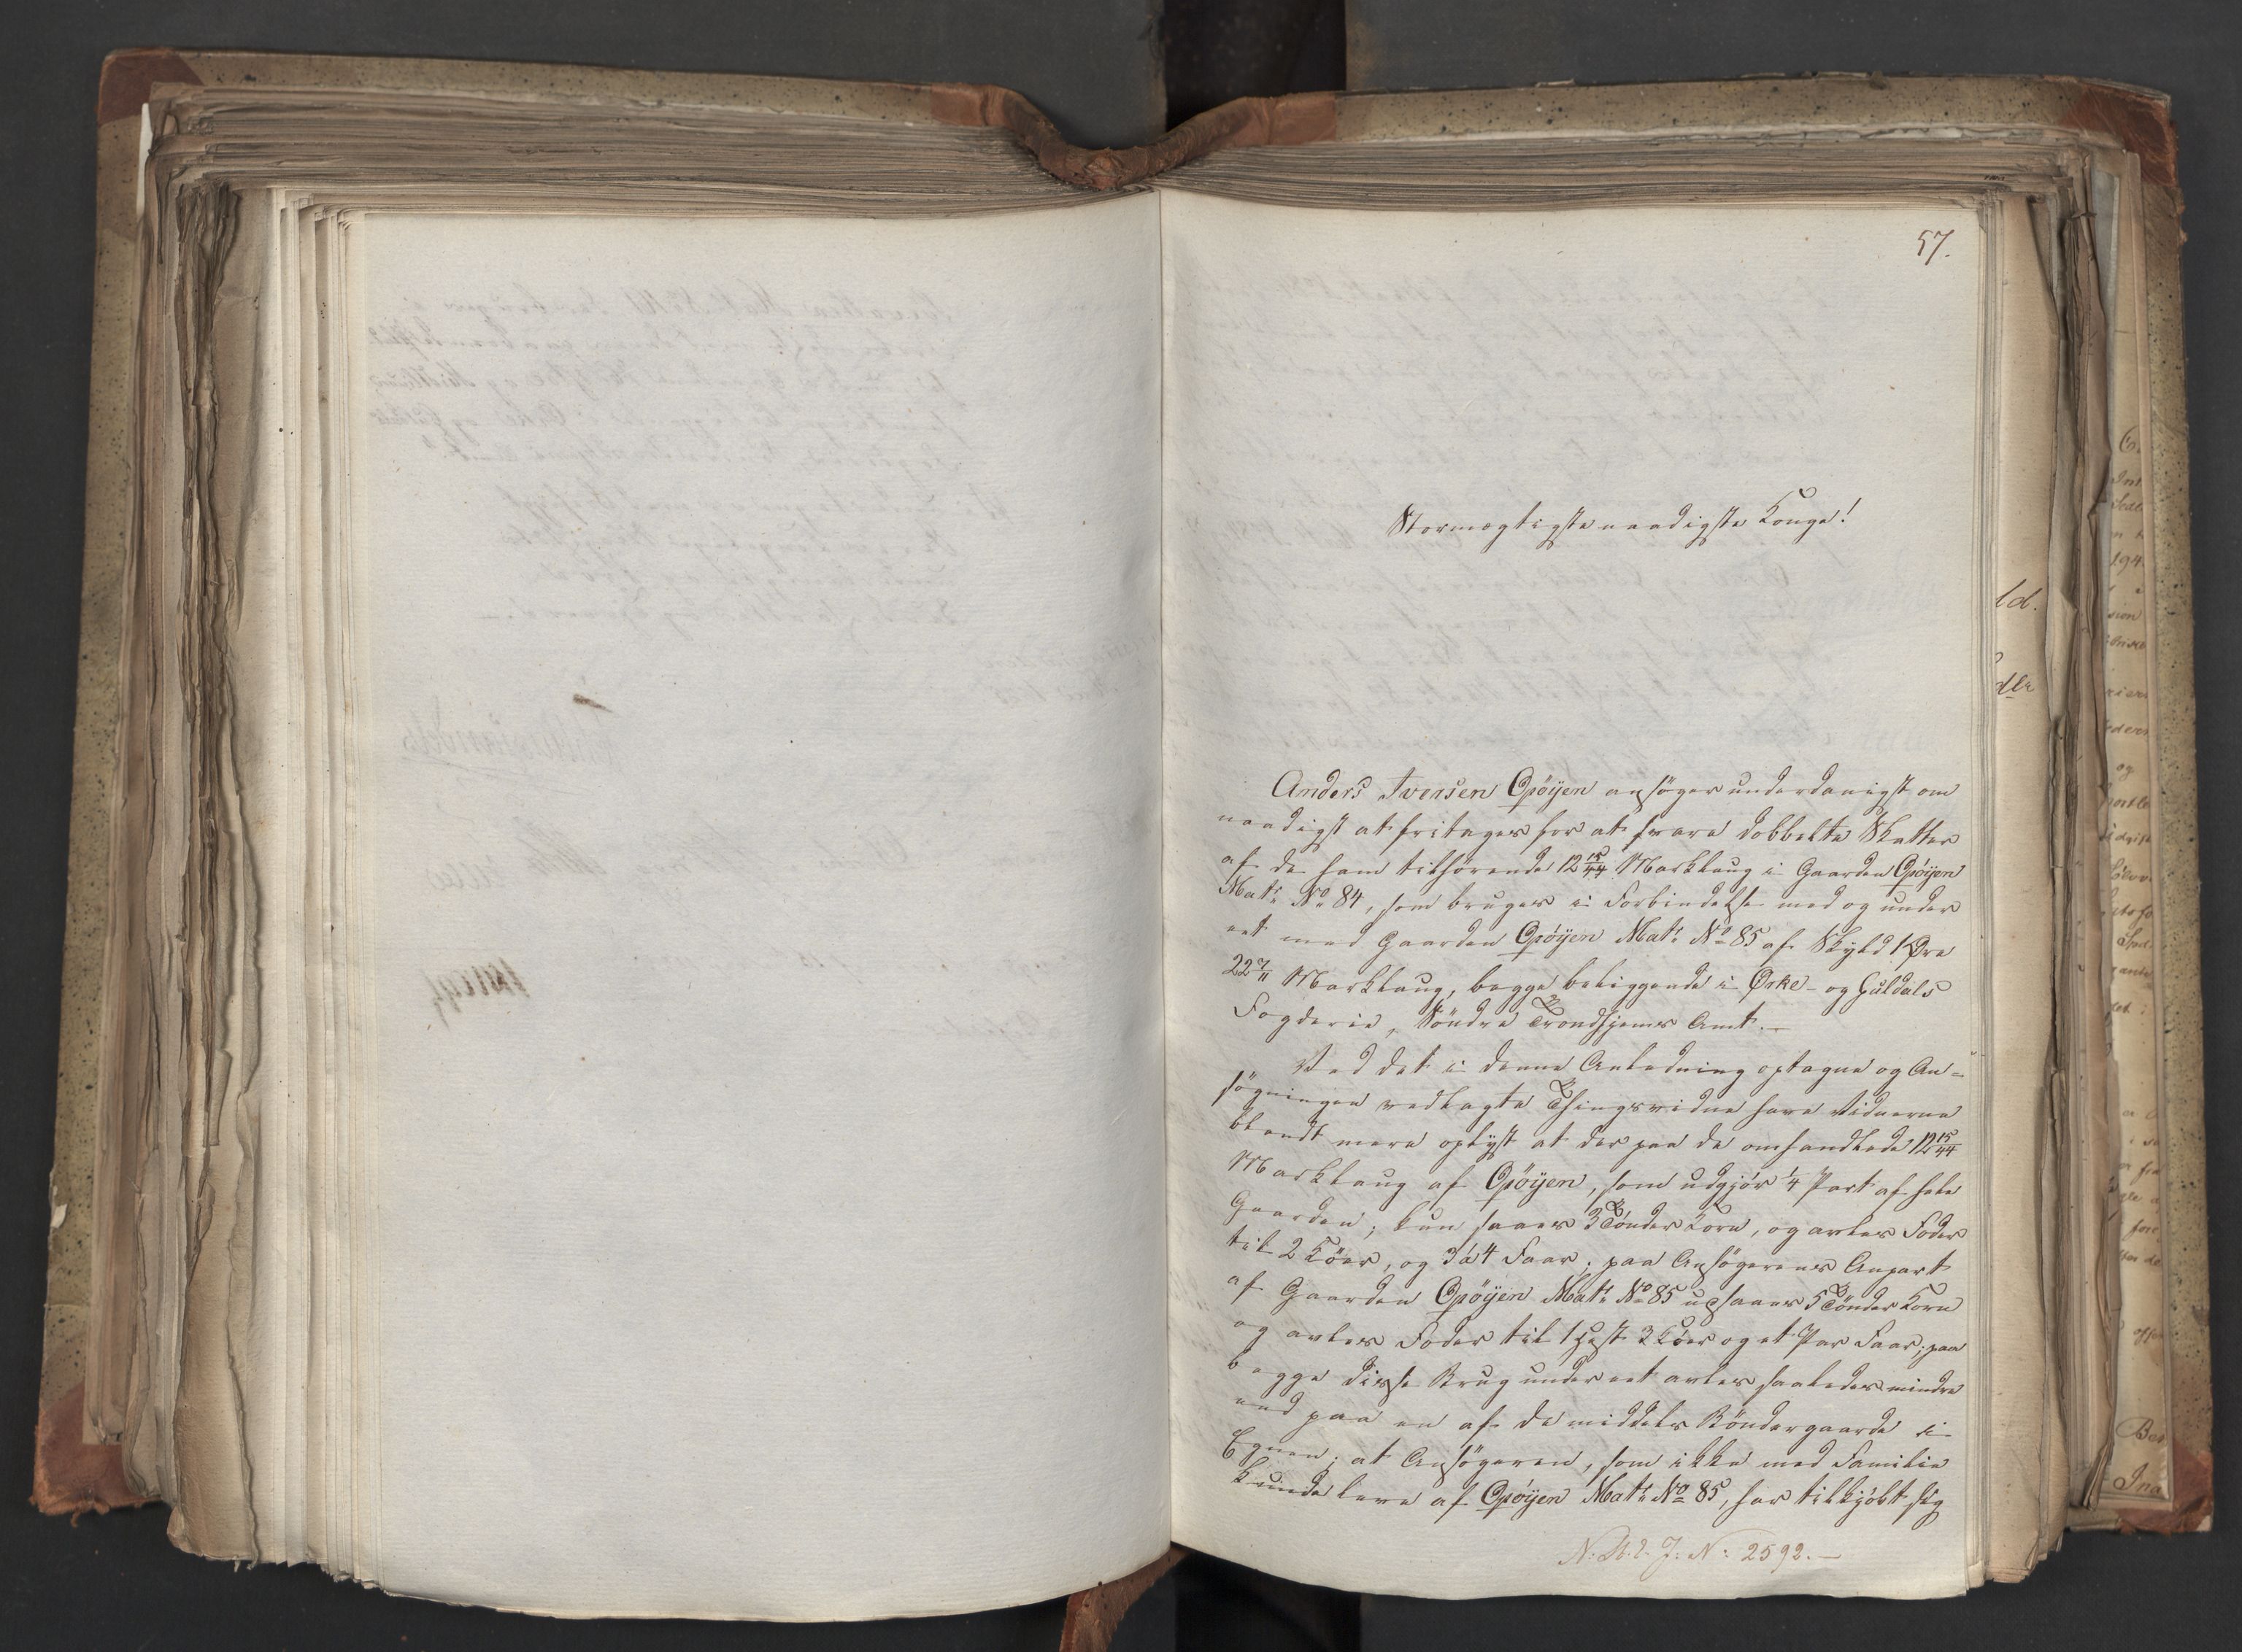 57.
Stormægtigste naadigste Konge!
Anders Iversen Opöijen ansöger underdanigst om
naadigst at fritages for at svare dobbelte Skatter
af de ham tilhørende 12 15/44 Marklaug i Gaarden Opöijen
Matr. No 84, som bruges i Forbindelse med og under
eet med Gaarden Opöijen Matr. No 85 af Skyld 1 Øre
22 7/11 Marklaug, begge beliggende i Orke- og Guldals
Fogderie, Söndre Trondhjems Amt.—
Ved det i denne Anledning optagne og An-
søgningen vedlagte Thingsvidne have Vidnerne
blandt mere oplyst at der paa de omhandlede 12 15/44
Marklaug af Opöijen, som udgjör 1/4 Part af hele
Gaarden; kun saaes 3 Tönder Korn, og avles Foder
til 2 Köer, og 3 à 4 Faar; paa Ansøgerens Anpart
af Gaarden Opöijen Matr. No 85 udsaaes 5 Tönder Korn
og avles Foder til 1 Hest 3 Köer og et Par Faar; paa
begge disse Brug under eet avles saaledes mindre
end paa en af de middels Böndergaarde i
Egnen; at Ansögeren, som ikke med Familie
kunde leve af Opöijen Matr. No 85, har tilkjöbt sig
J: N: 2592.—
ld.